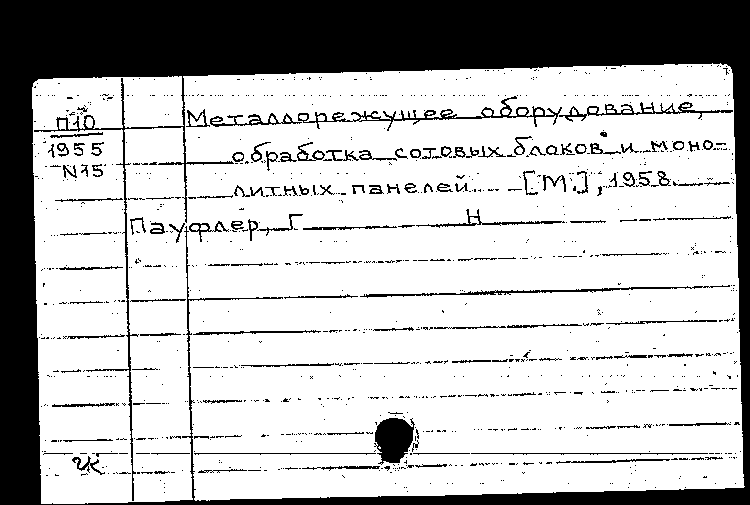 П10
1955
N15
Металлорежущее оборудование,
обработка сотовых блоков и моно-
литных панелей. [М.], 1958.
Пауфлер, Г Н